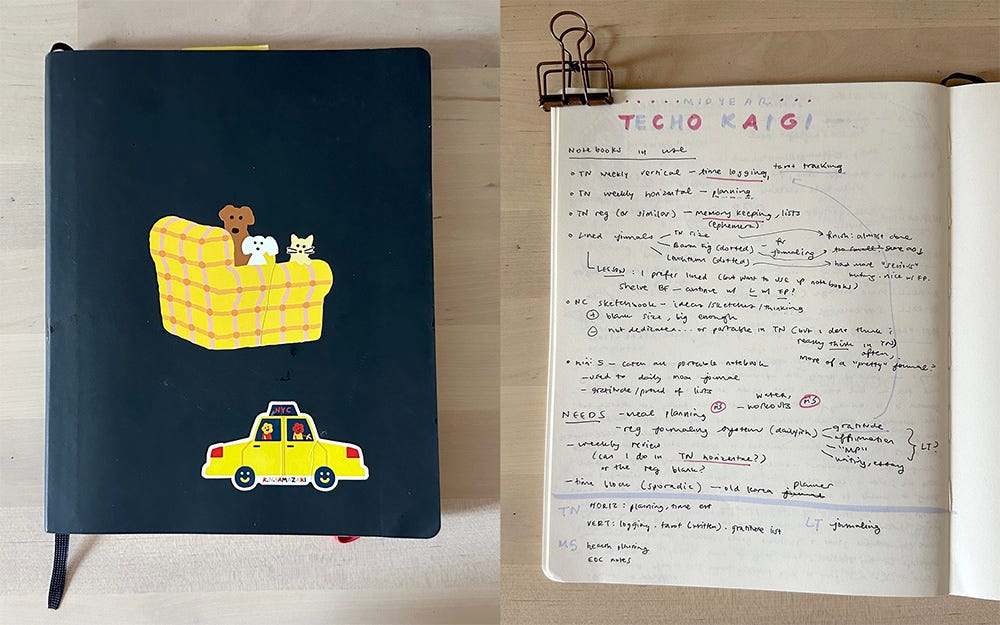 NYC
KACHAMAZAKI
MIDYEAR
TECHO KAIGI
Notebooks in use
TN weekly vertical - time logging, tarot tracking
TN weekly horizontal - planning
TN reg (or similar) - memory keeping, lists
(ephemera)
Lined journals
TN size
finish: almost done
Baron Fig (dotted) - for journaling
Leuchtturm (dotted)
had more "serious"
nice w/ FP.
LESSON: I prefer lined (but want to use up notebooks)
shelve BF - continue w/ L w/ FP?
NC sketchbook - ideas/sketches/thinking
+ blank size, big enough
- not dedicated... or portable in TN (but I don't think I
really think in TN
often,
more of a "pretty" journal?
Mini 5 - catch all portable notebook
- used to daily mom journal
- gratitude/proud of lists
NEEDS - meal planning M5 - water, workouts M5
- reg journaling system (dailyish)
gratitude
affirmation
"MP"
writing, essay
LT?
- weekly review
(can I do in TN horizontal?)
or the reg blank?
- time block (sporadic) - old Korea journal planner
TN HORIZ: planning, time est
VERT: logging . tarot (written) . gratitude list
LT journaling
M5 health planning
EDC notes